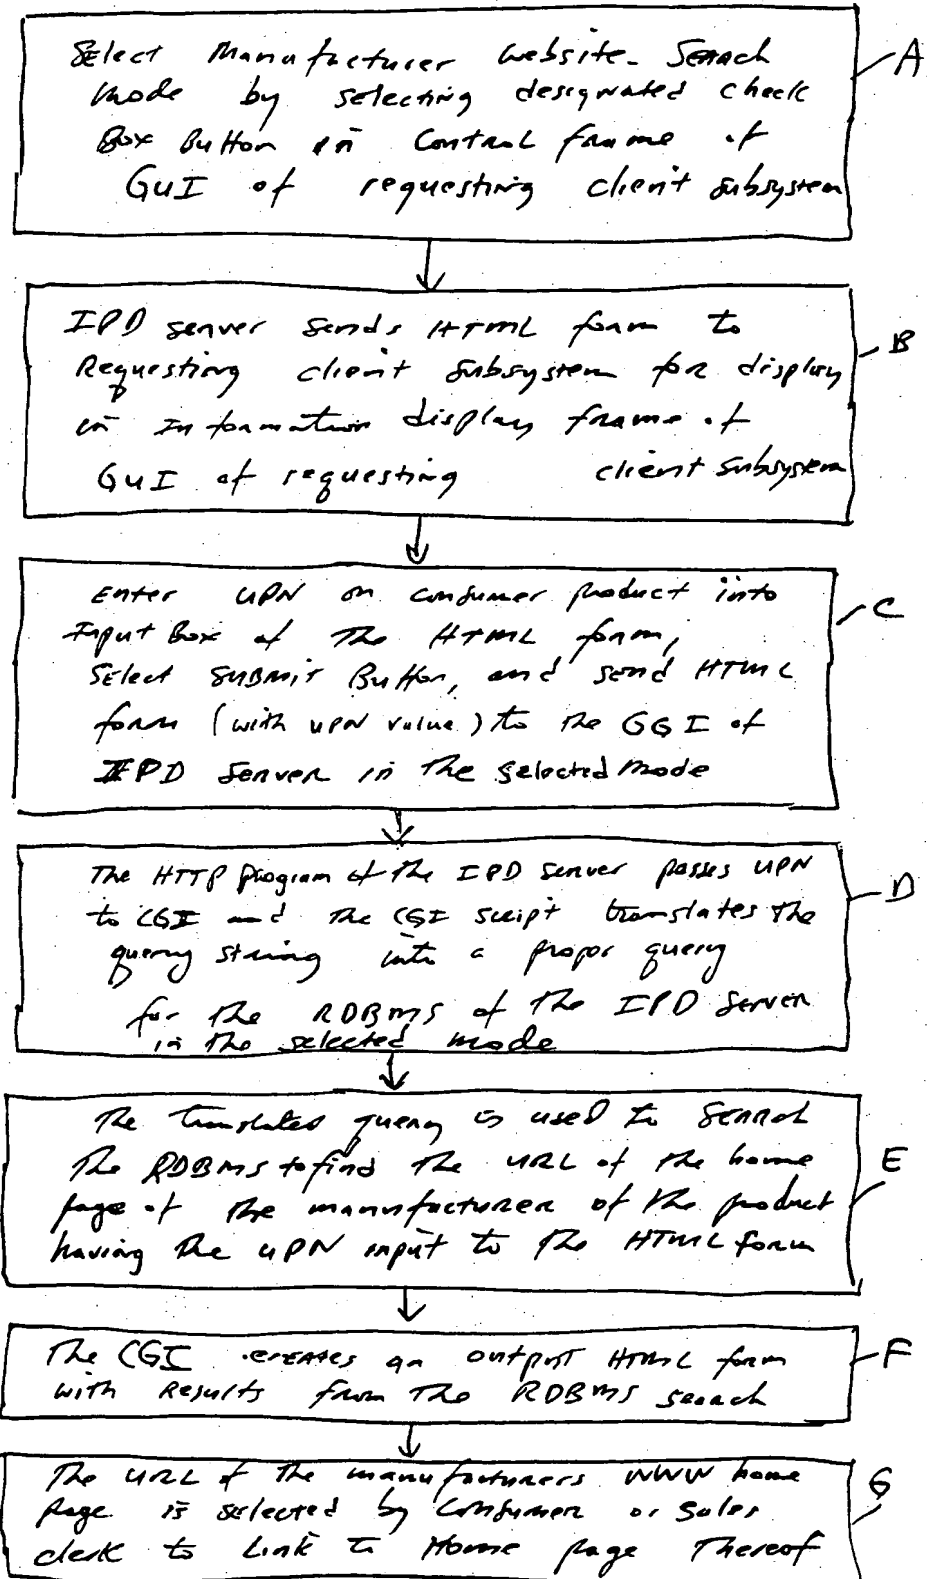 Select Manufacturer Website-Search
A
mode by selecting designated check
Box Button in Control frame of
GUI of requesting client subsystem
IPD server sends HTML form to
B
Requesting client subsystem for display
in Information display frame of
GUI of requesting client subsystem
Enter UPN on consumer product into
C
Input Box of The HTML form,
Select SUBMIT Button, and send HTML
form (with UPN value) to the GGI of
IPD Server in The selected mode
The HTTP program of the IPD server passes UPN
D
to CGI and the CGI script translates the
query string into a proper query
for the RDBMS of the IPD Server
in The selected mode
The translated query is used to Search
The RDBMS to find The URL of the home
E
page of the manufacturer of the product
having The UPN input to The HTML form
The CGI creates an output HTML form
F
with Results from The RDBMS search
The URL of The manufacturers WWW home
G
page is selected by Consumer or Sales
clerk to Link to Home page Thereof